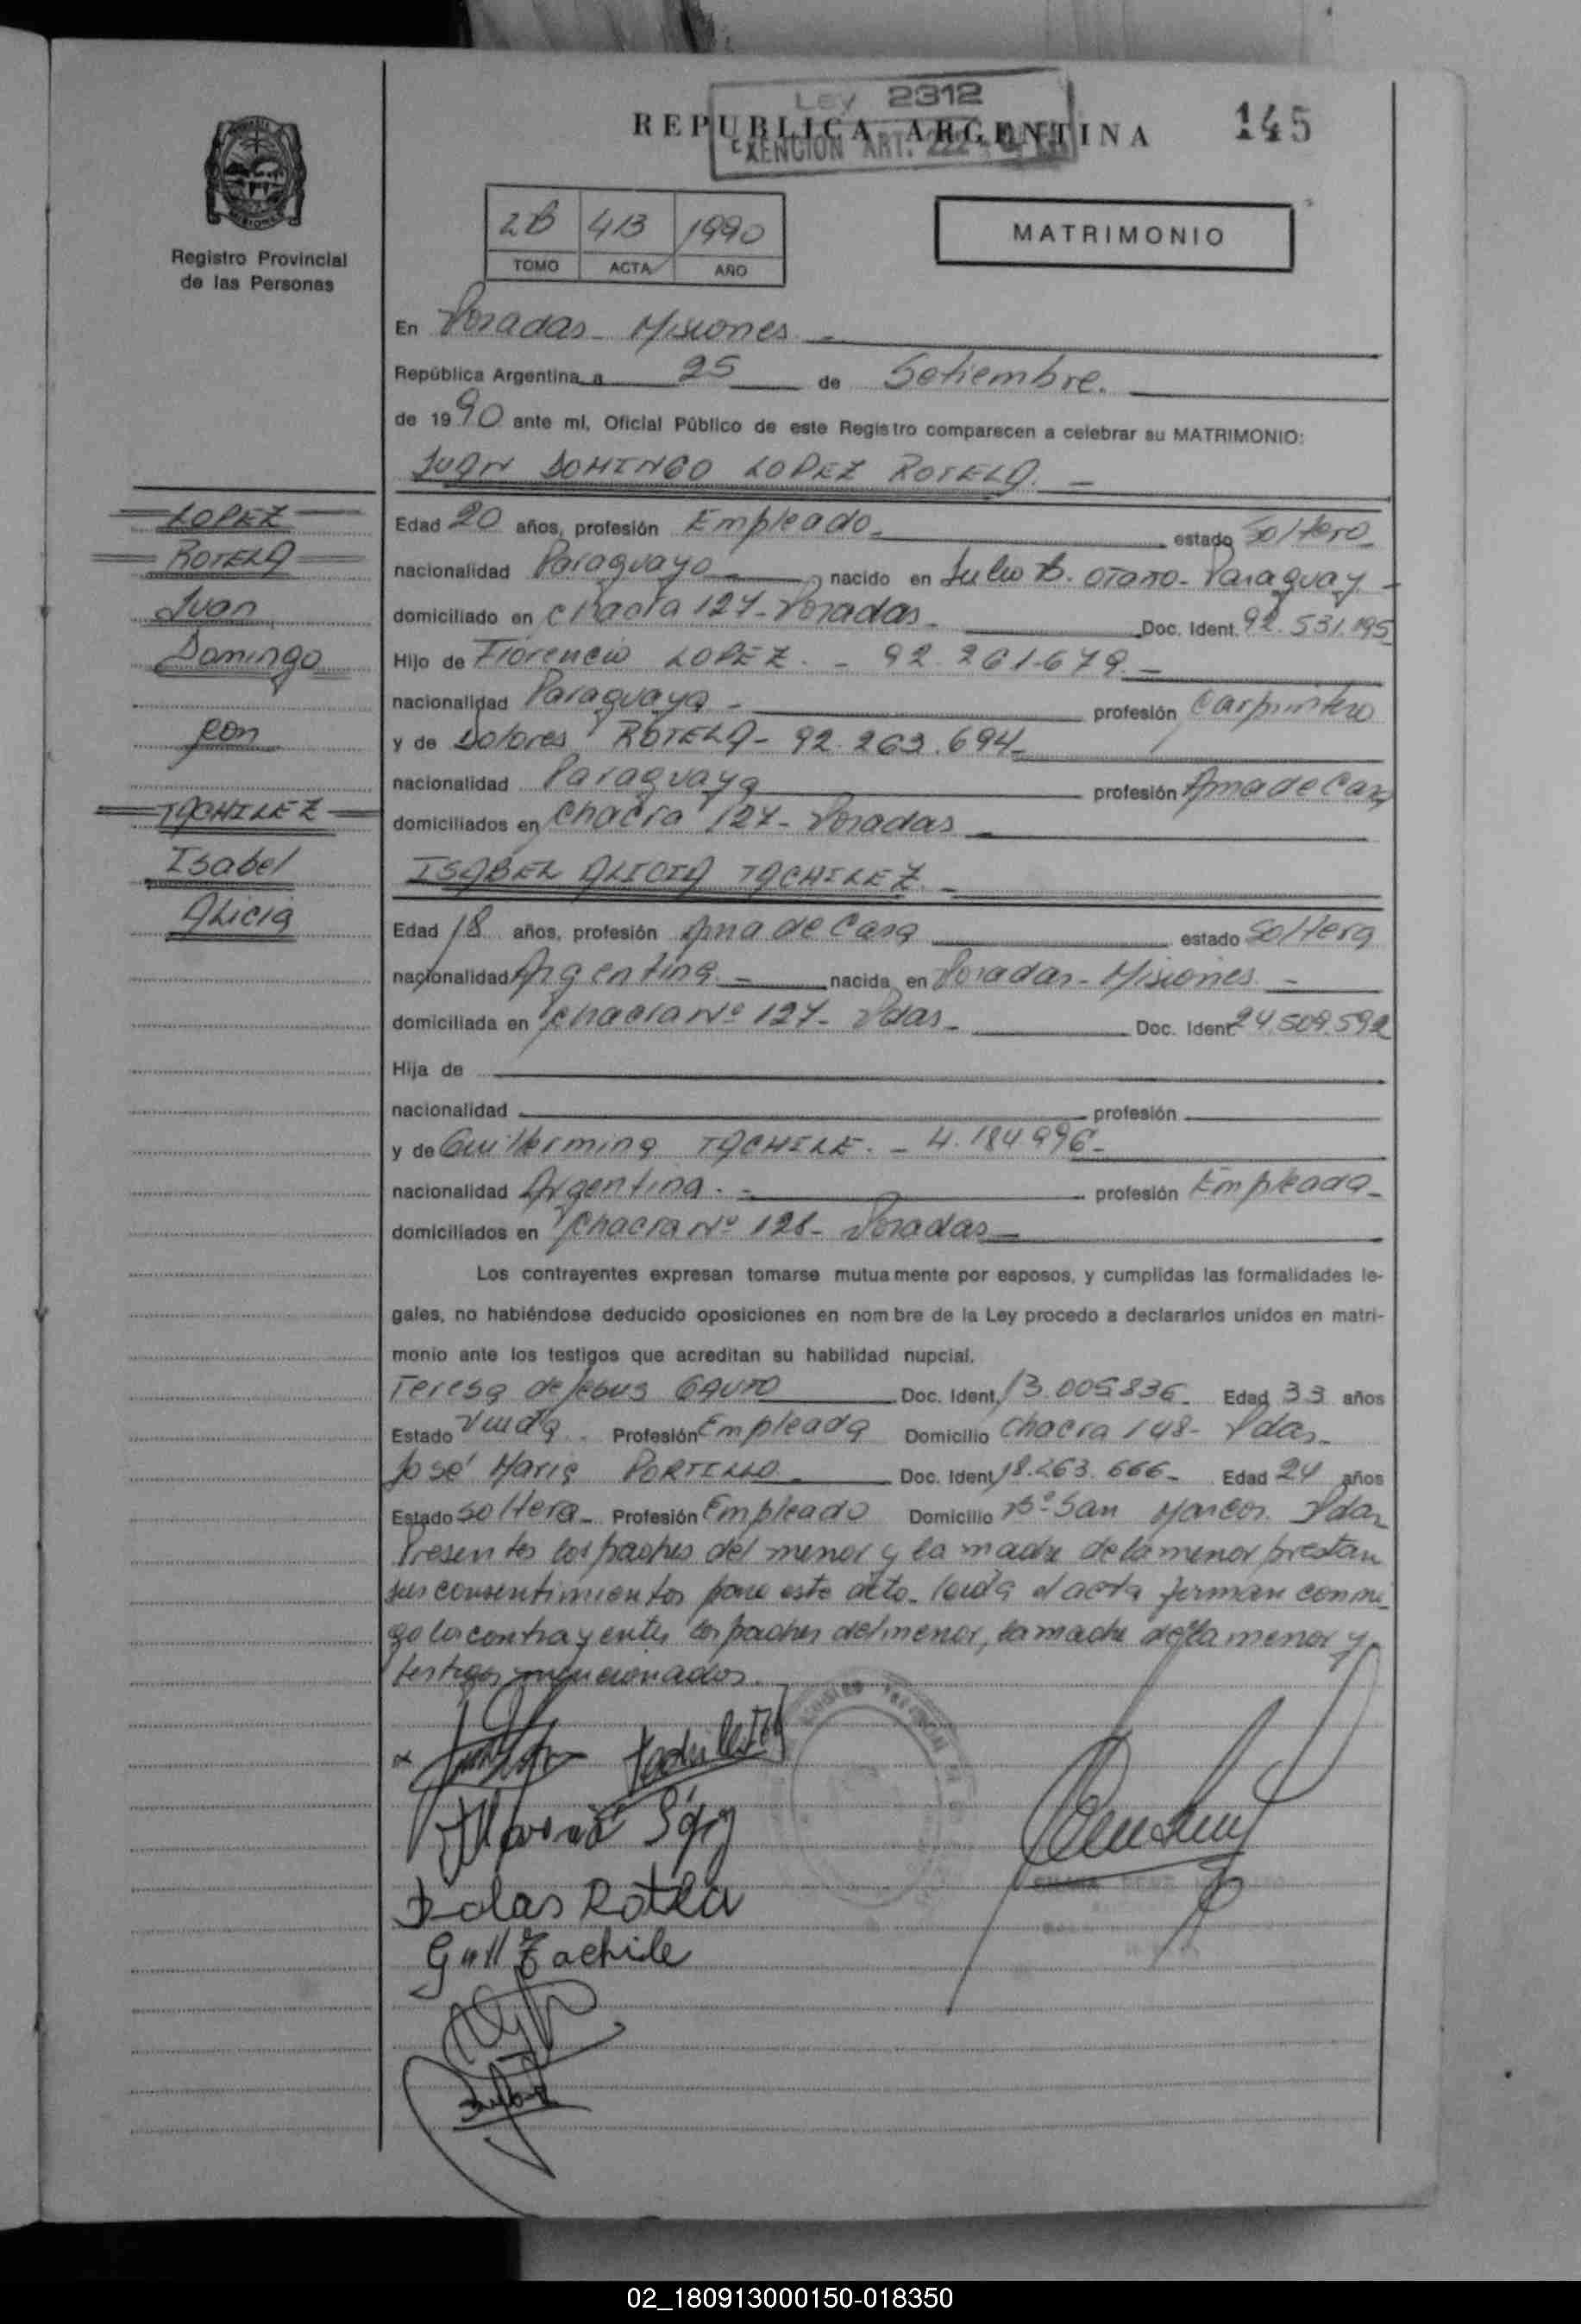 LEY 2312
REPUBLICA ARGENTINA
EXENCION ART. 222
145
2B 413 1990
TOMO ACTA AÑO
MATRIMONIO
Registro Provincial
de las Personas
En Posadas - Misiones. -
República Argentina a 25 de Setiembre.
de 1990 ante mí, Oficial Público de este Registro comparecen a celebrar su MATRIMONIO:
JUAN DOMINGO LOPEZ ROTELA. -
LOPEZ
ROTELA
Juan
Domingo
con
TACHILEZ
Isabel
Alicia
Edad 20 años, profesión Empleado. estado Soltero
nacionalidad Paraguaya nacido en Julio B. OTAÑO - Paraguay. -
domiciliado en Chacra 127 - Posadas - Doc. Ident. 92.531.195
Hijo de Florencio LOPEZ. - 92.261.679. -
nacionalidad Paraguaya - profesión Carpintero
y de Dolores ROTELA - 92.263.694 -
nacionalidad Paraguaya profesión Ama de Casa
domiciliados en Chacra 127 - Posadas -
ISABEL ALICIA TACHILEZ. -
Edad 18 años, profesión Ama de Casa estado Soltera
nacionalidad Argentina. - nacida en Posadas - Misiones. -
domiciliada en Chacra Nº 127 - Pdas. - Doc. Ident. 24.509.592
Hija de
nacionalidad profesión
y de Guillermina TACHILE. - 4.184.996 -
nacionalidad Argentina. - profesión Empleada -
domiciliados en Chacra Nº 128 - Posadas -
Los contrayentes expresan tomarse mutuamente por esposos, y cumplidas las formalidades le-
gales, no habiéndose deducido oposiciones en nombre de la Ley procedo a declararlos unidos en matri-
monio ante los testigos que acreditan su habilidad nupcial.
Teresa de Jesus GAUTO Doc. Ident. 13.005.836 - Edad 33 años
Estado Viuda - Profesión Empleada Domicilio Chacra 148 - Pdas. -
José Maria PORTILLO - Doc. Ident. 18.263.666 - Edad 24 años
Estado soltero - Profesión Empleado Domicilio Bº San Marcos. Pdas
Presentes los padres del menor y la madre de la menor prestan
sus consentimientos para este acto. Leída el acta firman conmi-
go los contrayentes los padres del menor, la madre de la menor y
testigos mencionados.
Rotela
Guill Tachile
02_180913000150-018350